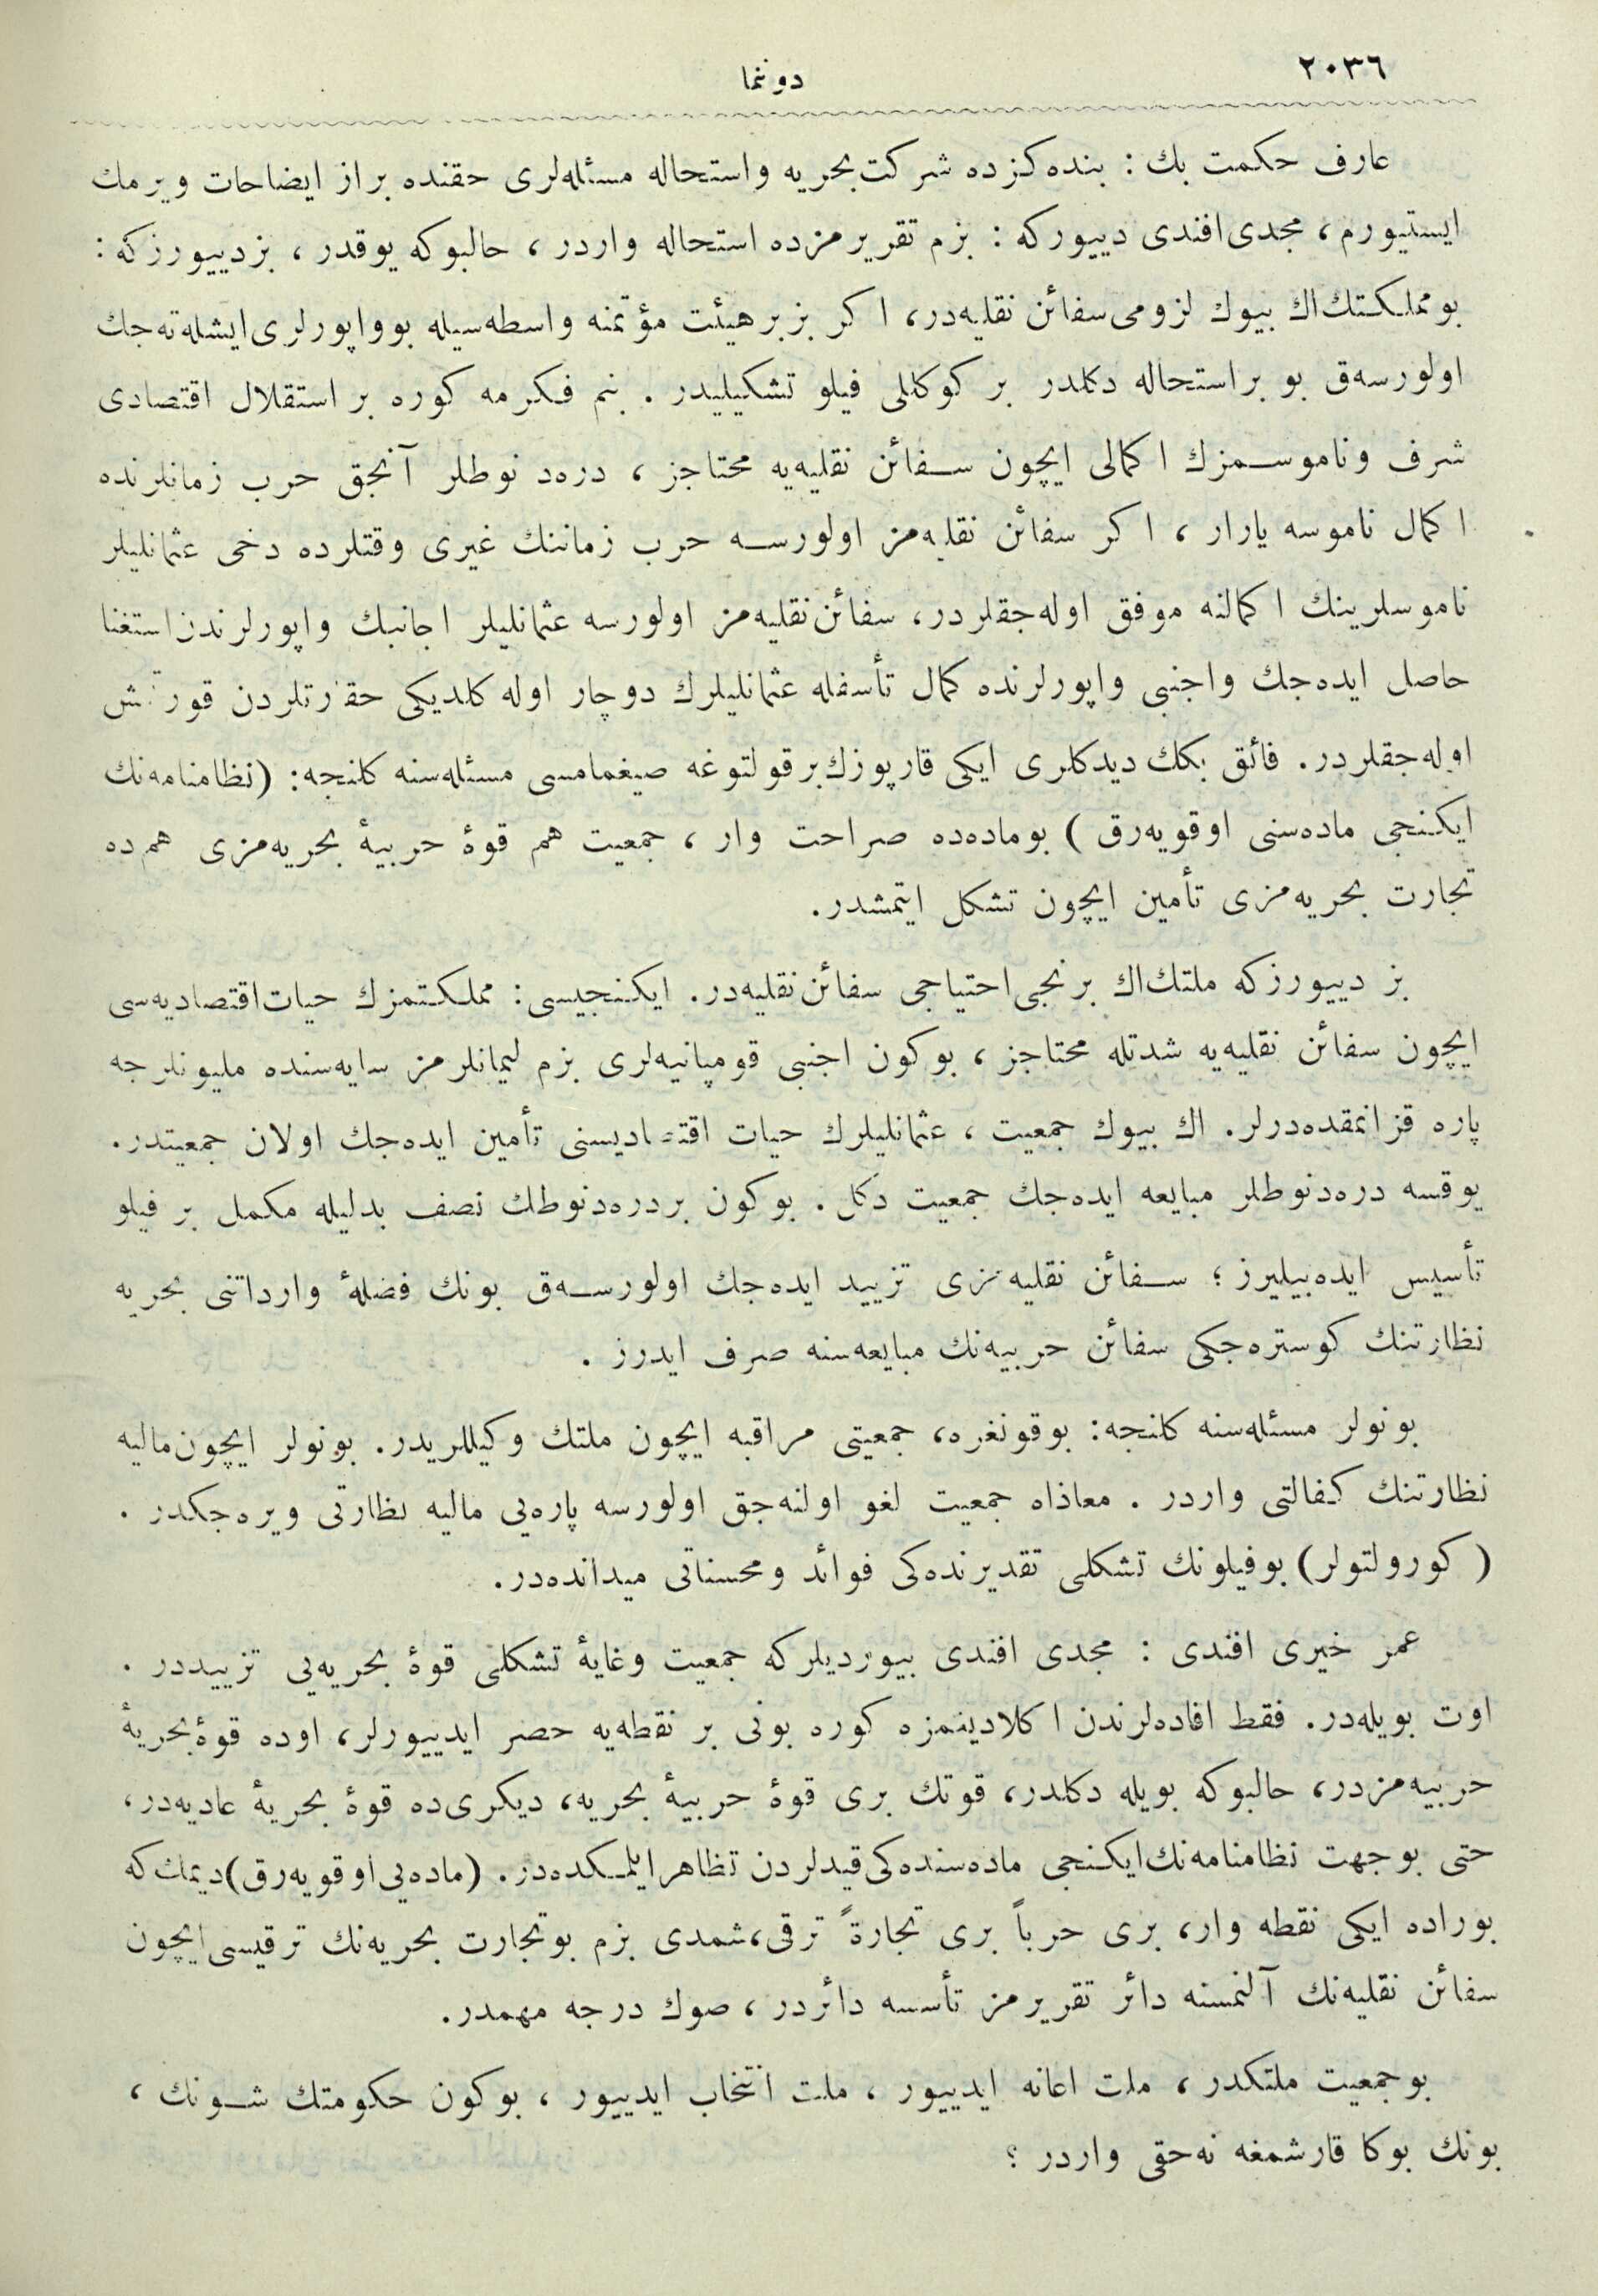 ٢٠٣٦
دوننما
عارف حكمت بك : بنده‌كزده شركت بحریه واستحاله مسئله‌لری حقنده براز ایضاحات ویرمك
ایستیورم، مجدی افندی دییوركه : بزم تقریرمزده استحاله واردر ، حالبوكه یوقدر ، بزدییورزكه :
بومملكتك اك بیوك لزومی سفائن نقلیه‌در، اكر بزبر هیئت مؤتمنه واسطه‌سیله بوواپورلری ایشله‌ته‌جك
اولورسه‌ق بو براستحاله دكلدر بر كوكللی فیلو تشكیلیدر . بنم فكرمه كوره بر استقلال اقتصادی
شرف وناموسمزك اكمالی ایچون سفائن نقلیه‌یه محتاجز ، دره‌د نوطلر آنجق حرب زمانلرنده
اكمال ناموسه یارار ، اكر سفائن نقلیه‌مز اولورسه حرب زماننك غیری وقتلرده دخی عثمانلیلر
ناموسلرینك اكمالنه موفق اوله‌جقلردر، سفائن نقلیه‌مز اولورسه عثمانلیلر اجانبك واپورلرندن استغنا
حاصل ایده‌جك واجنبی واپورلرنده كمال تأسفله عثمانلیلرك دوچار اوله كلدیكی حقارتلردن قورتلمش
اوله‌جقلردر. فائق بكك دیدكلری ایكی قارپوزك برقولتوغه صیغمامسی مسئله‌سنه كلنجه: (نظامنامه‌نك
ایكنجی ماده‌سنی اوقویه‌رق ) بوماده‌ده صراحت وار ، جمعیت هم قوۀ حربیۀ بحریه‌مزی هم‌ده
تجارت بحریه‌مزی تأمین ایچون تشكل ایتمشدر.
بز دییورزكه ملتك اك برنجی احتیاجی سفائن نقلیه‌در. ایكنجیسی: مملكتمزك حیات اقتصادیه‌سی
ایچون سفائن نقلیه‌یه شدتله محتاجز ، بوكون اجنبی قومپانیه‌لری بزم لیمانلرمز سایه‌سنده ملیونلرجه
پاره قزانمقده‌درلر. اك بیوك جمعیت ، عثمانلیلرك حیات اقتصادیسنی تأمین ایده‌جك اولان جمعیتدر.
یوقسه دره‌دنوطلر مبایعه ایده‌جك جمعیت دكل . بوكون بردره‌دنوطك نصف بدلیله مكمل بر فیلو
تأسیس ایده‌بیلیرز ؛ سفائن نقلیه‌مزی تزیید ایده‌جك اولورسه‌ق بونك فضلۀ وارداتنی بحریه
نظارتنك كوستره‌جكی سفائن حربیه‌نك مبایعه‌سنه صرف ایدرز .
بونولر مسئله‌سنه كلنجه: بوقونغره، جمعیتی مراقبه ایچون ملتك وكیللریدر. بونولر ایچون مالیه
نظارتنك كفالتی واردر . معاذاه جمعیت لغو اولنه‌جق اولورسه پاره‌یی مالیه نظارتی ویره‌جكدر .
( كورولتولر) بوفیلونك تشكلی تقدیرنده‌كی فوائد ومحسناتی میدانده‌در.
عمر خیری افندی : مجدی افندی بیوردیلركه جمعیت وغایۀ تشكلی قوۀ بحریه‌یی تزییددر .
اوت بویله‌در. فقط افاده‌لرندن اكلادیغمزه كوره بونی بر نقطه‌یه حصر ایدییورلر، اوده قوۀ بحریۀ
حربیه‌مزدر، حالبوكه بویله دكلدر، قوتك بری قوۀ حربیۀ بحریه، دیكری‌ده قوۀ بحریۀ عادیه‌در،
حتی بوجهت نظامنامه‌نك ایكنجی ماده‌سنده‌كی قیدلردن تظاهر ایلمكده‌در. (ماده‌یی اوقویه‌رق) دیمك كه
بوراده ایكی نقطه وار، بری حرباً بری تجارةً ترقی، شمدی بزم بوتجارت بحریه‌نك ترقیسی ایچون
سفائن نقلیه‌نك آلنمسنه دائر تقریرمز تأسسه دائردر ، صوك درجه مهمدر.
بوجمعیت ملتكدر، ملت اعانه ایدییور ، ملت انتخاب ایدییور ، بوكون حكومتك شونك ،
بونك بوكا قارشمغه نه‌حقی واردر ؟